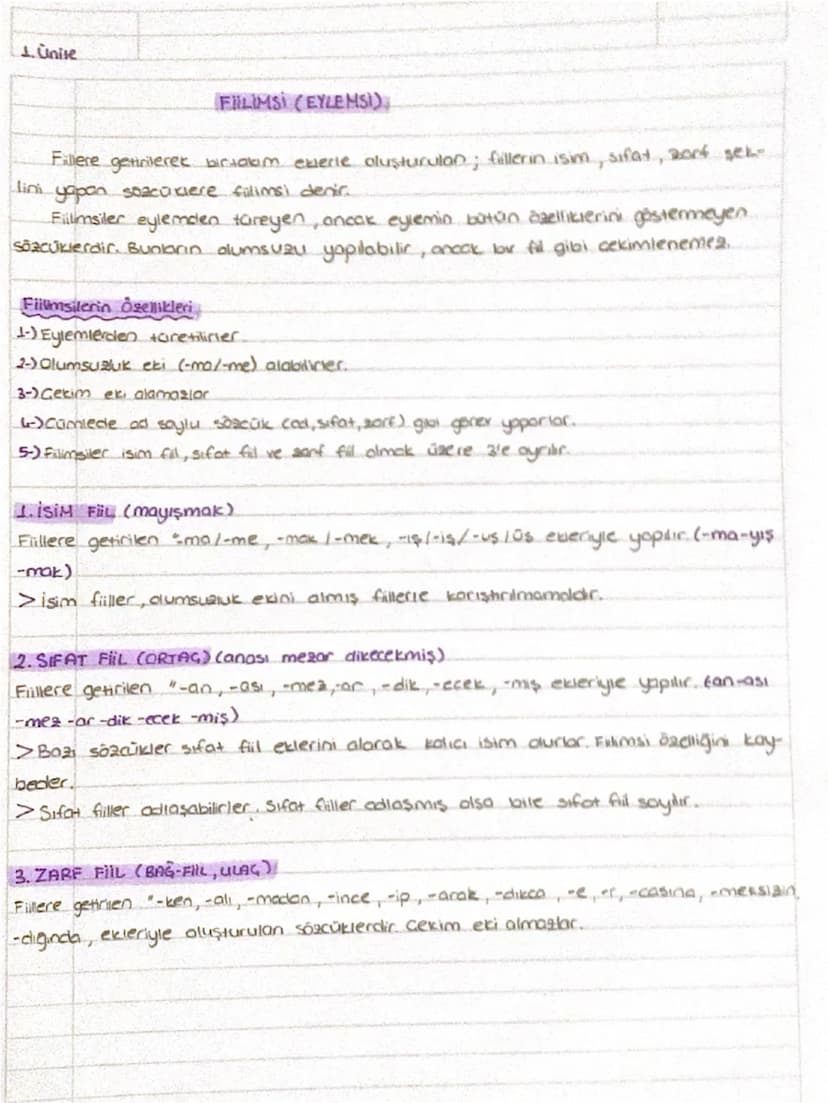 1. Ünite
FİİLİMSİ (EYLEMSİ)
Fiillere getirilerek birtakım eklerle oluşturulan; fiillerin isim, sıfat, zarf şek-
lini yapan sözcüklere fiilimsi denir.
Fiilimsiler eylemden türeyen, ancak eylemin bütün özelliklerini göstermeyen
sözcüklerdir. Bunların olumsuzu yapılabilir, ancak bir fiil gibi çekimlenemez.
Fiilimsilerin Özellikleri
1-) Eylemlerden türetilirler.
2-) Olumsuzluk eki (-ma/-me) alabilirler.
3-) Çekim eki alamazlar
4-) Cümlede ad soylu sözcük (ad, sıfat, zarf) gibi görev yaparlar.
5-) Fiilimsiler isim fiil, sıfat fiil ve zarf fiil olmak üzere 3'e ayrılır.
1. İSİM FİİL (mayışmak)
Fiillere getirilen "-ma/-me, -mak/-mek, -ış/-iş/-uş/üş ekleriyle yapılır. (-ma-yış
-mak)
> İsim fiiller, olumsuzluk ekini almış fiillerle karıştırılmamalıdır.
2. SIFAT FİİL (ORTAÇ) (anası mezar dikecekmiş)
Fiillere getirilen "-an, -ası, -mez, -ar, -dik, -ecek, -mış ekleriyle yapılır. (an-ası
-mez -ar -dik -ecek -miş)
> Bazı sözcükler sıfat fiil eklerini alarak kalıcı isim olurlar. Fiilimsi özelliğini kay-
beder.
> Sıfat fiiller adlaşabilirler. Sıfat fiiller adlaşmış olsa bile sıfat fiil sayılır.
3. ZARF FİİL (BAĞ-FİİL, ULAÇ)
Fiillere getirilen "-ken, -alı, -madan, -ince, -ip, -arak, -dıkça, -e, -r, -casına, -meksizin,
-dığında, ekleriyle oluşturulan sözcüklerdir. Çekim eki almazlar.